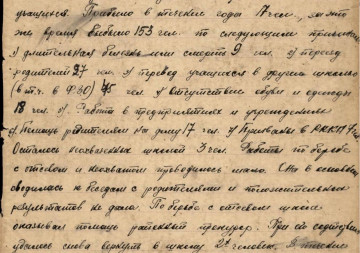 учащихся. Прибыло в течение года 17 чел., за это
же время выбыло 153 чел. по следующим причинам:
1) длительная болезнь или смерть 9 чел. 2) переезд
родителей 27 чел. 3) перевод учащихся в другие школы
(в т.ч. в ФЗО) 45 чел. 4) Отсутствие обуви и одежды
18 чел. 5) Работа в предприятиях и учреждениях
6) Помощь родителям на дому 17 чел. Призваны в РККА
Осталось неохваченных школой 3 чел. Работа по борьбе
с отсевом и неохватом проводилась мало. Она в основном
сводилась к беседам с родителями и положительных
результатов не дала. По борьбе с отсевом школе
оказывал помощь районный прокурор. При его содействии
удалось снова вернуть в школу 2х человек. В течение